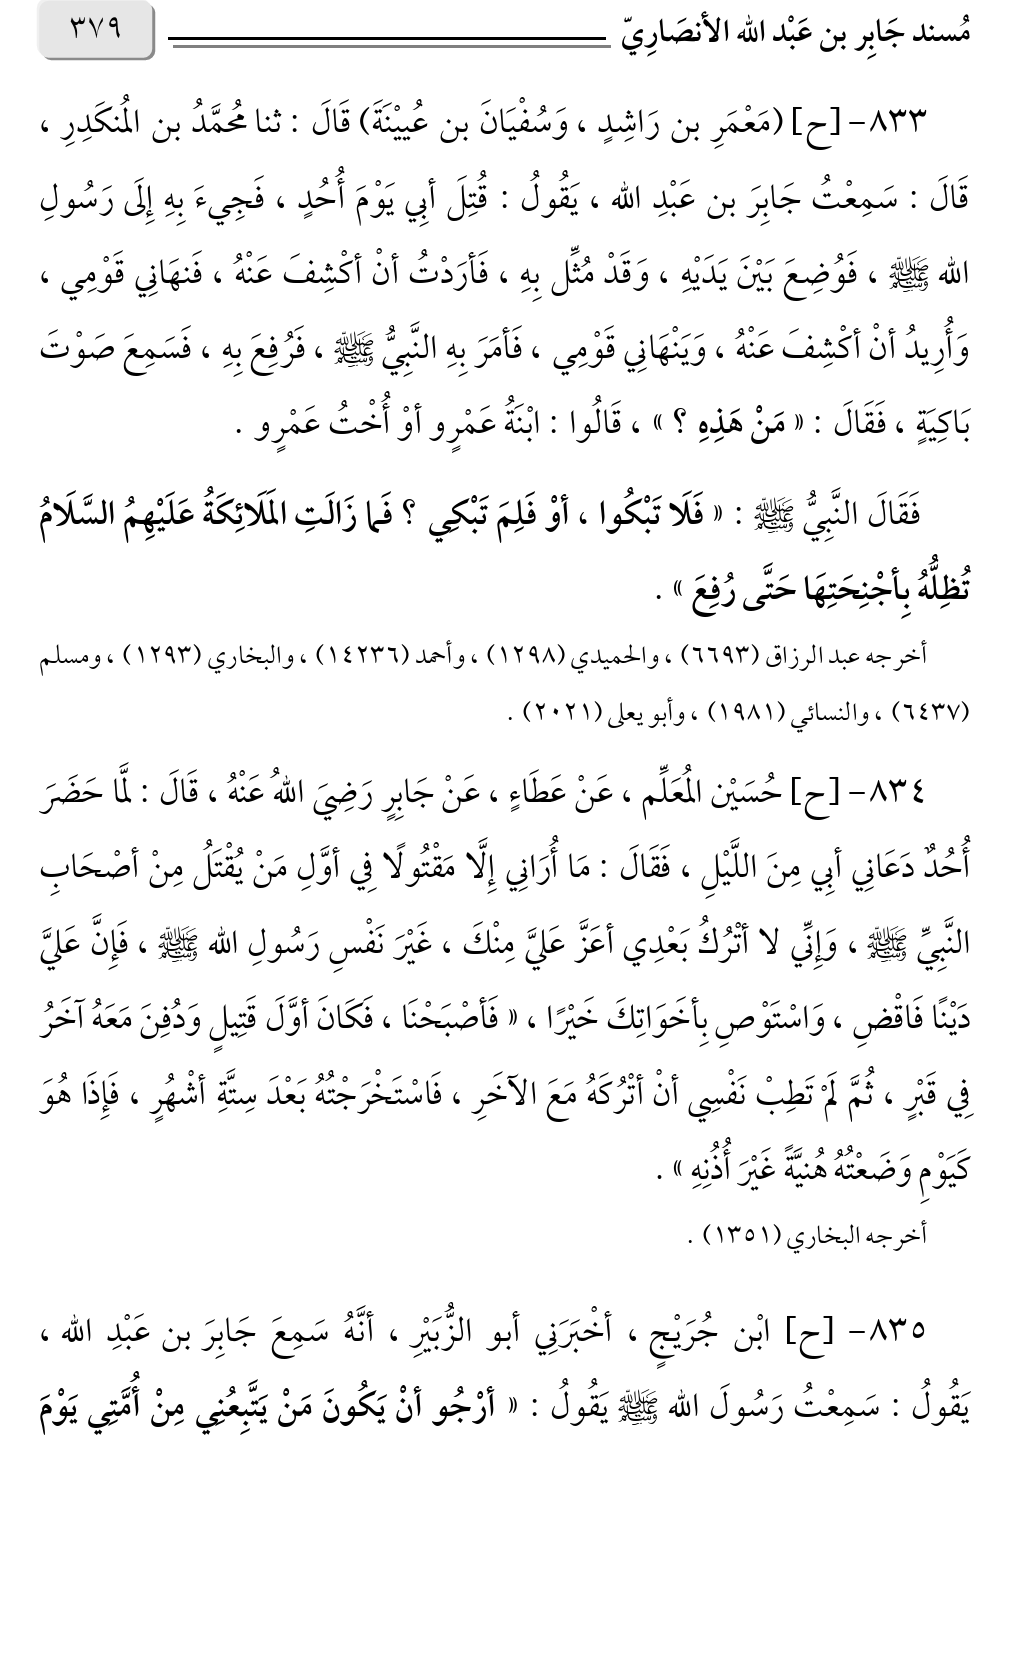 مُسند جَابِر بن عَبْد الله الأنصَارِيّ ٣٧٩
٨٣٣- [ح] (مَعْمَرِ بن رَاشِدٍ ، وَسُفْيَانَ بن عُيينَةَ) قَالَ : ثنا مُحمَّدُ بن المُنكَدِرِ ،
قَالَ : سَمِعْتُ جَابِرَ بن عَبْدِ الله ، يَقُولُ : قُتِلَ أبِي يَوْمَ أُحُدٍ ، فَجِيءَ بِهِ إِلَى رَسُولِ
الله ﷺ ، فَوُضِعَ بَيْنَ يَدَيْهِ ، وَقَدْ مُثِّل بِهِ ، فَأرَدْتُ أنْ أكْشِفَ عَنْهُ ، فَنهَانِي قَوْمِي ،
وَأُرِيدُ أنْ أكْشِفَ عَنْهُ ، وَيَنْهَانِي قَوْمِي ، فَأمَرَ بِهِ النَّبِيُّ ﷺ ، فَرُفِعَ بِهِ ، فَسَمِعَ صَوْتَ
بَاكِيَةٍ ، فَقَالَ : « مَنْ هَذِهِ ؟ » ، قَالُوا : ابْنَةُ عَمْرٍو أوْ أُخْتُ عَمْرٍو .
فَقَالَ النَّبِيُّ ﷺ : « فَلَا تَبْكُوا ، أوْ فَلِمَ تَبْكِي ؟ فَما زَالَتِ المَلَائِكَةُ عَلَيْهِمُ السَّلَامُ
تُظِلُّهُ بِأجْنِحَتِهَا حَتَّى رُفِعَ » .
أخرجه عبد الرزاق (٦٦٩٣) ، والحميدي (١٢٩٨) ، وأحمد (١٤٢٣٦) ، والبخاري (١٢٩٣) ، ومسلم
(٦٤٣٧) ، والنسائي (١٩٨١) ، وأبو يعلى (٢٠٢١) .
٨٣٤- [ح] حُسَيْن المُعَلِّم ، عَنْ عَطَاءٍ ، عَنْ جَابِرٍ رَضِيَ اللهُ عَنْهُ ، قَالَ : لَمَّا حَضَرَ
أُحُدٌ دَعَانِي أبِي مِنَ اللَّيْلِ ، فَقَالَ : مَا أُرَانِي إِلَّا مَقْتُولًا فِي أوَّلِ مَنْ يُقْتَلُ مِنْ أصْحَابِ
النَّبِيِّ ﷺ ، وَإِنِّي لا أتْرُكُ بَعْدِي أعَزَّ عَلَيَّ مِنْكَ ، غَيْرَ نَفْسِ رَسُولِ الله ﷺ ، فَإِنَّ عَلَيَّ
دَيْنًا فَاقْضِ ، وَاسْتَوْصِ بِأخَوَاتِكَ خَيْرًا ، « فَأصْبَحْنَا ، فَكَانَ أوَّلَ قَتِيلٍ وَدُفِنَ مَعَهُ آخَرُ
فِي قَبْرٍ ، ثُمَّ لَمْ تَطِبْ نَفْسِي أنْ أتْرُكَهُ مَعَ الآخَرِ ، فَاسْتَخْرَجْتُهُ بَعْدَ سِتَّةِ أشْهُرٍ ، فَإِذَا هُوَ
كَيَوْمِ وَضَعْتُهُ هُنيَّةً غَيْرَ أُذُنِهِ » .
أخرجه البخاري (١٣٥١) .
٨٣٥- [ح] ابْن جُرَيْجٍ ، أخْبَرَنِي أبو الزُّبَيْرِ ، أنَّهُ سَمِعَ جَابِرَ بن عَبْدِ الله ،
يَقُولُ : سَمِعْتُ رَسُولَ الله ﷺ يَقُولُ : « أرْجُو أنْ يَكُونَ مَنْ يَتَّبِعُنِي مِنْ أُمَّتِي يَوْمَ